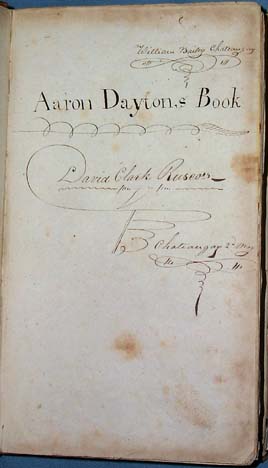 William Bailey Chateaugay
Aaron Dayton,s Book
David Clark
Chateaugay 2d May